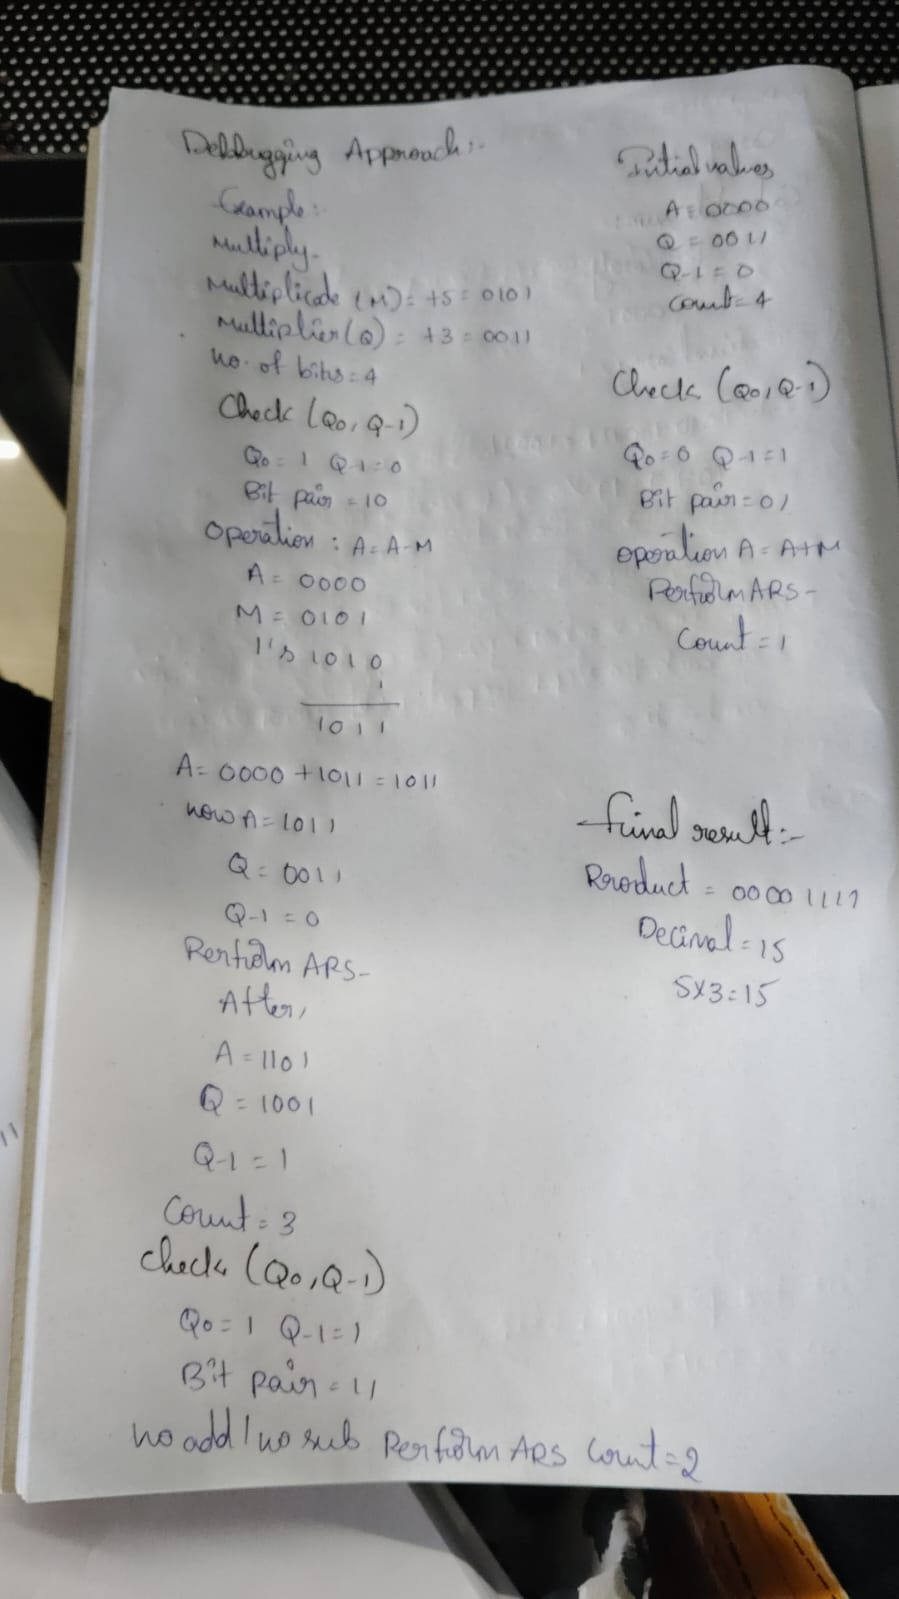 Debbugging Approach:-
Example:
Multiply-
Multiplicode (M)= +5 = 0101
Multiplier(Q) = +3 = 0011
no. of bits = 4
Check (Q0, Q-1)
Q0 = 1 Q-1 = 0
Bit pair = 10
Operation : A = A-M
A = 0000
M = 0101
1's 1010
1
1011
A = 0000 + 1011 = 1011
now A = 1011
Q = 0011
Q-1 = 0
Perform ARS-
After,
A = 1101
Q = 1001
Q-1 = 1
Count = 3
check (Q0, Q-1)
Q0 = 1 Q-1 = 1
Bit pair = 11
no add / no sub Perform ARS Count = 2
Initial values
A = 0000
Q = 0011
Q-1 = 0
count = 4
Check (Q0, Q-1)
Q0 = 0 Q-1 = 1
Bit pair = 01
operation A = A+M
Perform ARS-
Count = 1
Final result:-
Product = 00001111
Decimal = 15
5x3 = 15